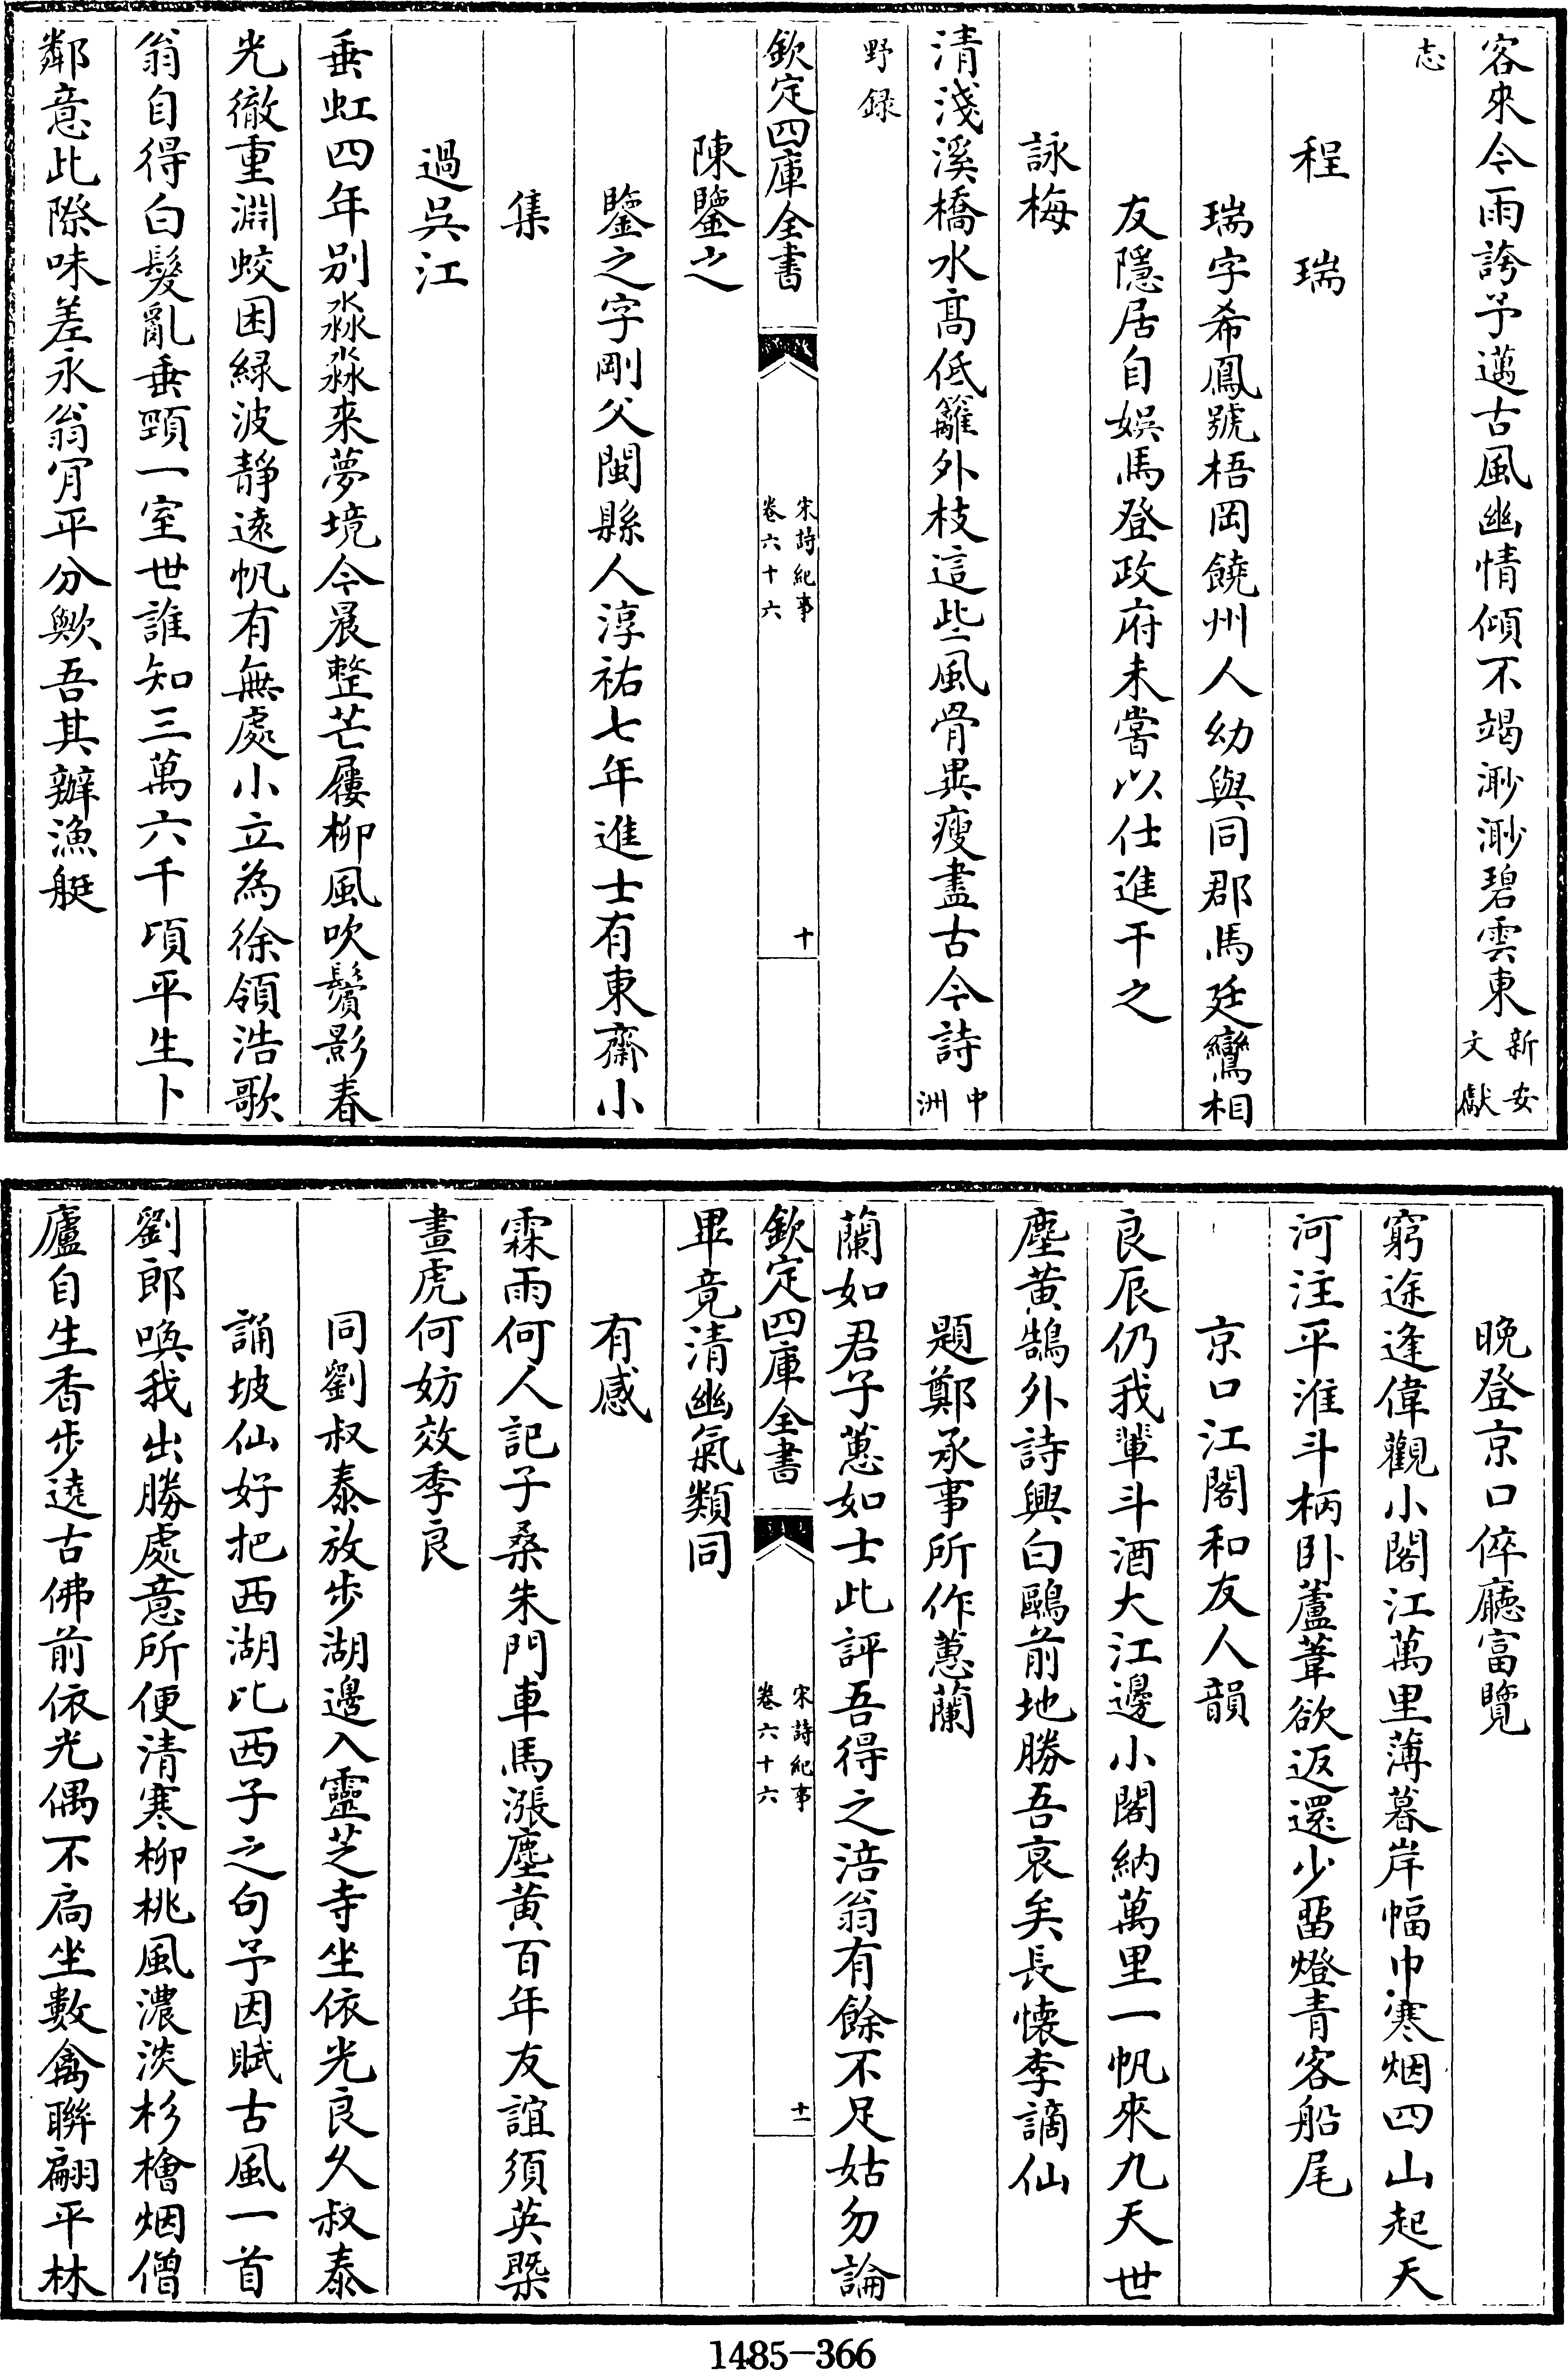 客來今雨誇予邁古風幽情傾不竭渺渺碧雲東新安文獻
志
程瑞
瑞字希鳳號梧岡饒州人幼與同郡馬廷鸞相
友隱居自娛馬登政府未嘗以仕進干之
詠梅
清淺溪橋水髙低籬外枝這些風骨異瘦盡古今詩中洲
野録
欽定四庫全書
宋詩紀事
卷六十六
十
陳鑒之
鑒之字剛父閩縣人淳祐七年進士有東齋小
集
過吳江
垂虹四年别淼淼来夢境今晨整芒屨柳風吹鬢影春
光徹重淵蛟困緑波靜逺帆有無處小立為徐領浩歌
翁自得白髮亂垂頸一室世誰知三萬六千頃平生卜
鄰意此際味差永翁肎平分歟吾其辦漁艇
晚登京口倅廳富覽
窮途逢偉觀小閣江萬里薄暮岸幅巾寒烟四山起天
河注平淮斗柄卧蘆葦欲返還少畱燈青客船尾
京口江閣和友人韻
良辰仍我輩斗酒大江邊小閣納萬里一帆來九天世
塵黄鵠外詩興白鷗前地勝吾衰矣長懐李謫仙
題鄭承事所作蕙蘭
蘭如君子蕙如士此評吾得之涪翁有餘不足姑勿論
欽定四庫全書
宋詩紀事
卷六十六
十一
畢竟清幽氣類同
有感
霖雨何人記子桑朱門車馬漲塵黄百年友誼須英槩
畫虎何妨效季良
同劉叔泰放步湖邊入靈芝寺坐依光良久叔泰
誦坡仙好把西湖比西子之句予因賦古風一首
劉郎喚我出勝處意所便清寒柳桃風濃淡杉檜烟僧
廬自生香步遶古佛前依光偶不扃坐數禽聨翩平林
1485-366